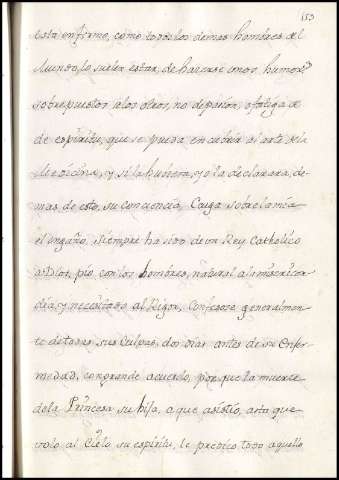 153
està enfermo, como todos los demas hombres del
Mundo, lo suelen estar, de hacerse unos humores
sobrepuestos alos otros, no depasion, ofatiga de
de espiritu, que se pueda encubrir al arte dela
Medicina, y si la huviera, yo la declarara, de-
mas de esto, su conciencia, Caiga sobre la mia
el engaño, siempre ha sido de un Rey Catholico
a Dios, pio con los hombres, natural a la misericor-
dia, y necesitado al Rigor, Confesose generalmen-
te de todas sus Culpas, dos dias antes de su Enfer-
medad, con grande acuerdo, por que la muerte
dela Princesa su hija, a que asistio, asta que
volo al Cielo su espiritu, le predico todo aquello